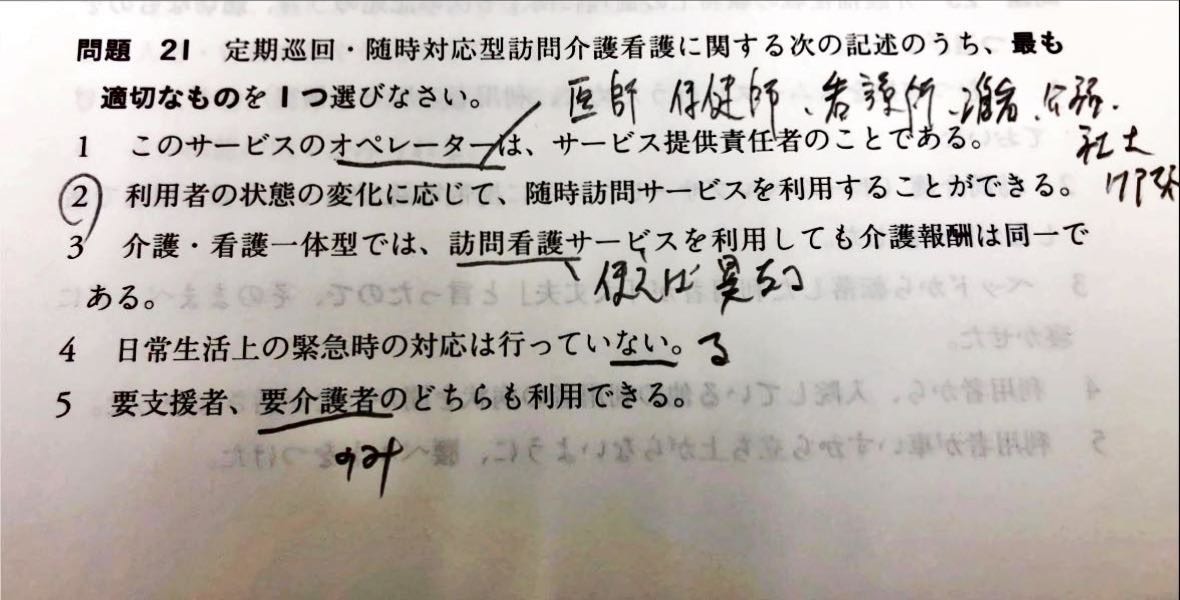 問題 21 定期巡回・随時対応型訪問介護看護に関する次の記述のうち、最も
適切なものを1つ選びなさい。
医師 保健師、看護師、准看、介福、
社士
ケアマネ
1 このサービスのオペレーターは、サービス提供責任者のことである。
2 利用者の状態の変化に応じて、随時訪問サービスを利用することができる。
3 介護・看護一体型では、訪問看護サービスを利用しても介護報酬は同一で
ある。
使えば 異なる
4 日常生活上の緊急時の対応は行っていない。る
5 要支援者、要介護者のどちらも利用できる。
のみ